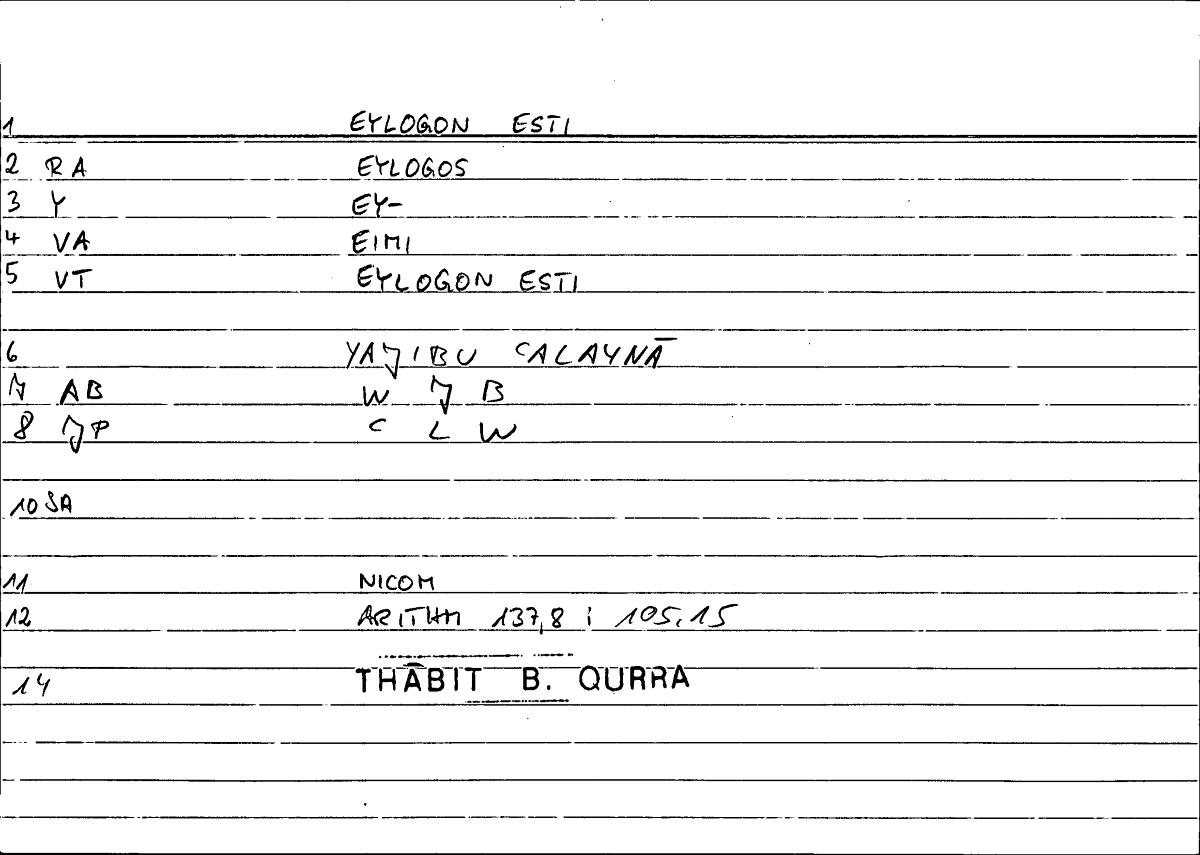 1 EYLOGON ESTI
2 RA EYLOGOS
3 Y EY-
4 VA EIMI
5 VT EYLOGON ESTI
6 YAJIBU ʿALAYNĀ
7 AB W J B
8 JP ʿ L W
10 SA
11 NICOM
12 ARITHM 137,8 ; 105,15
14 THĀBIT B. QURRA